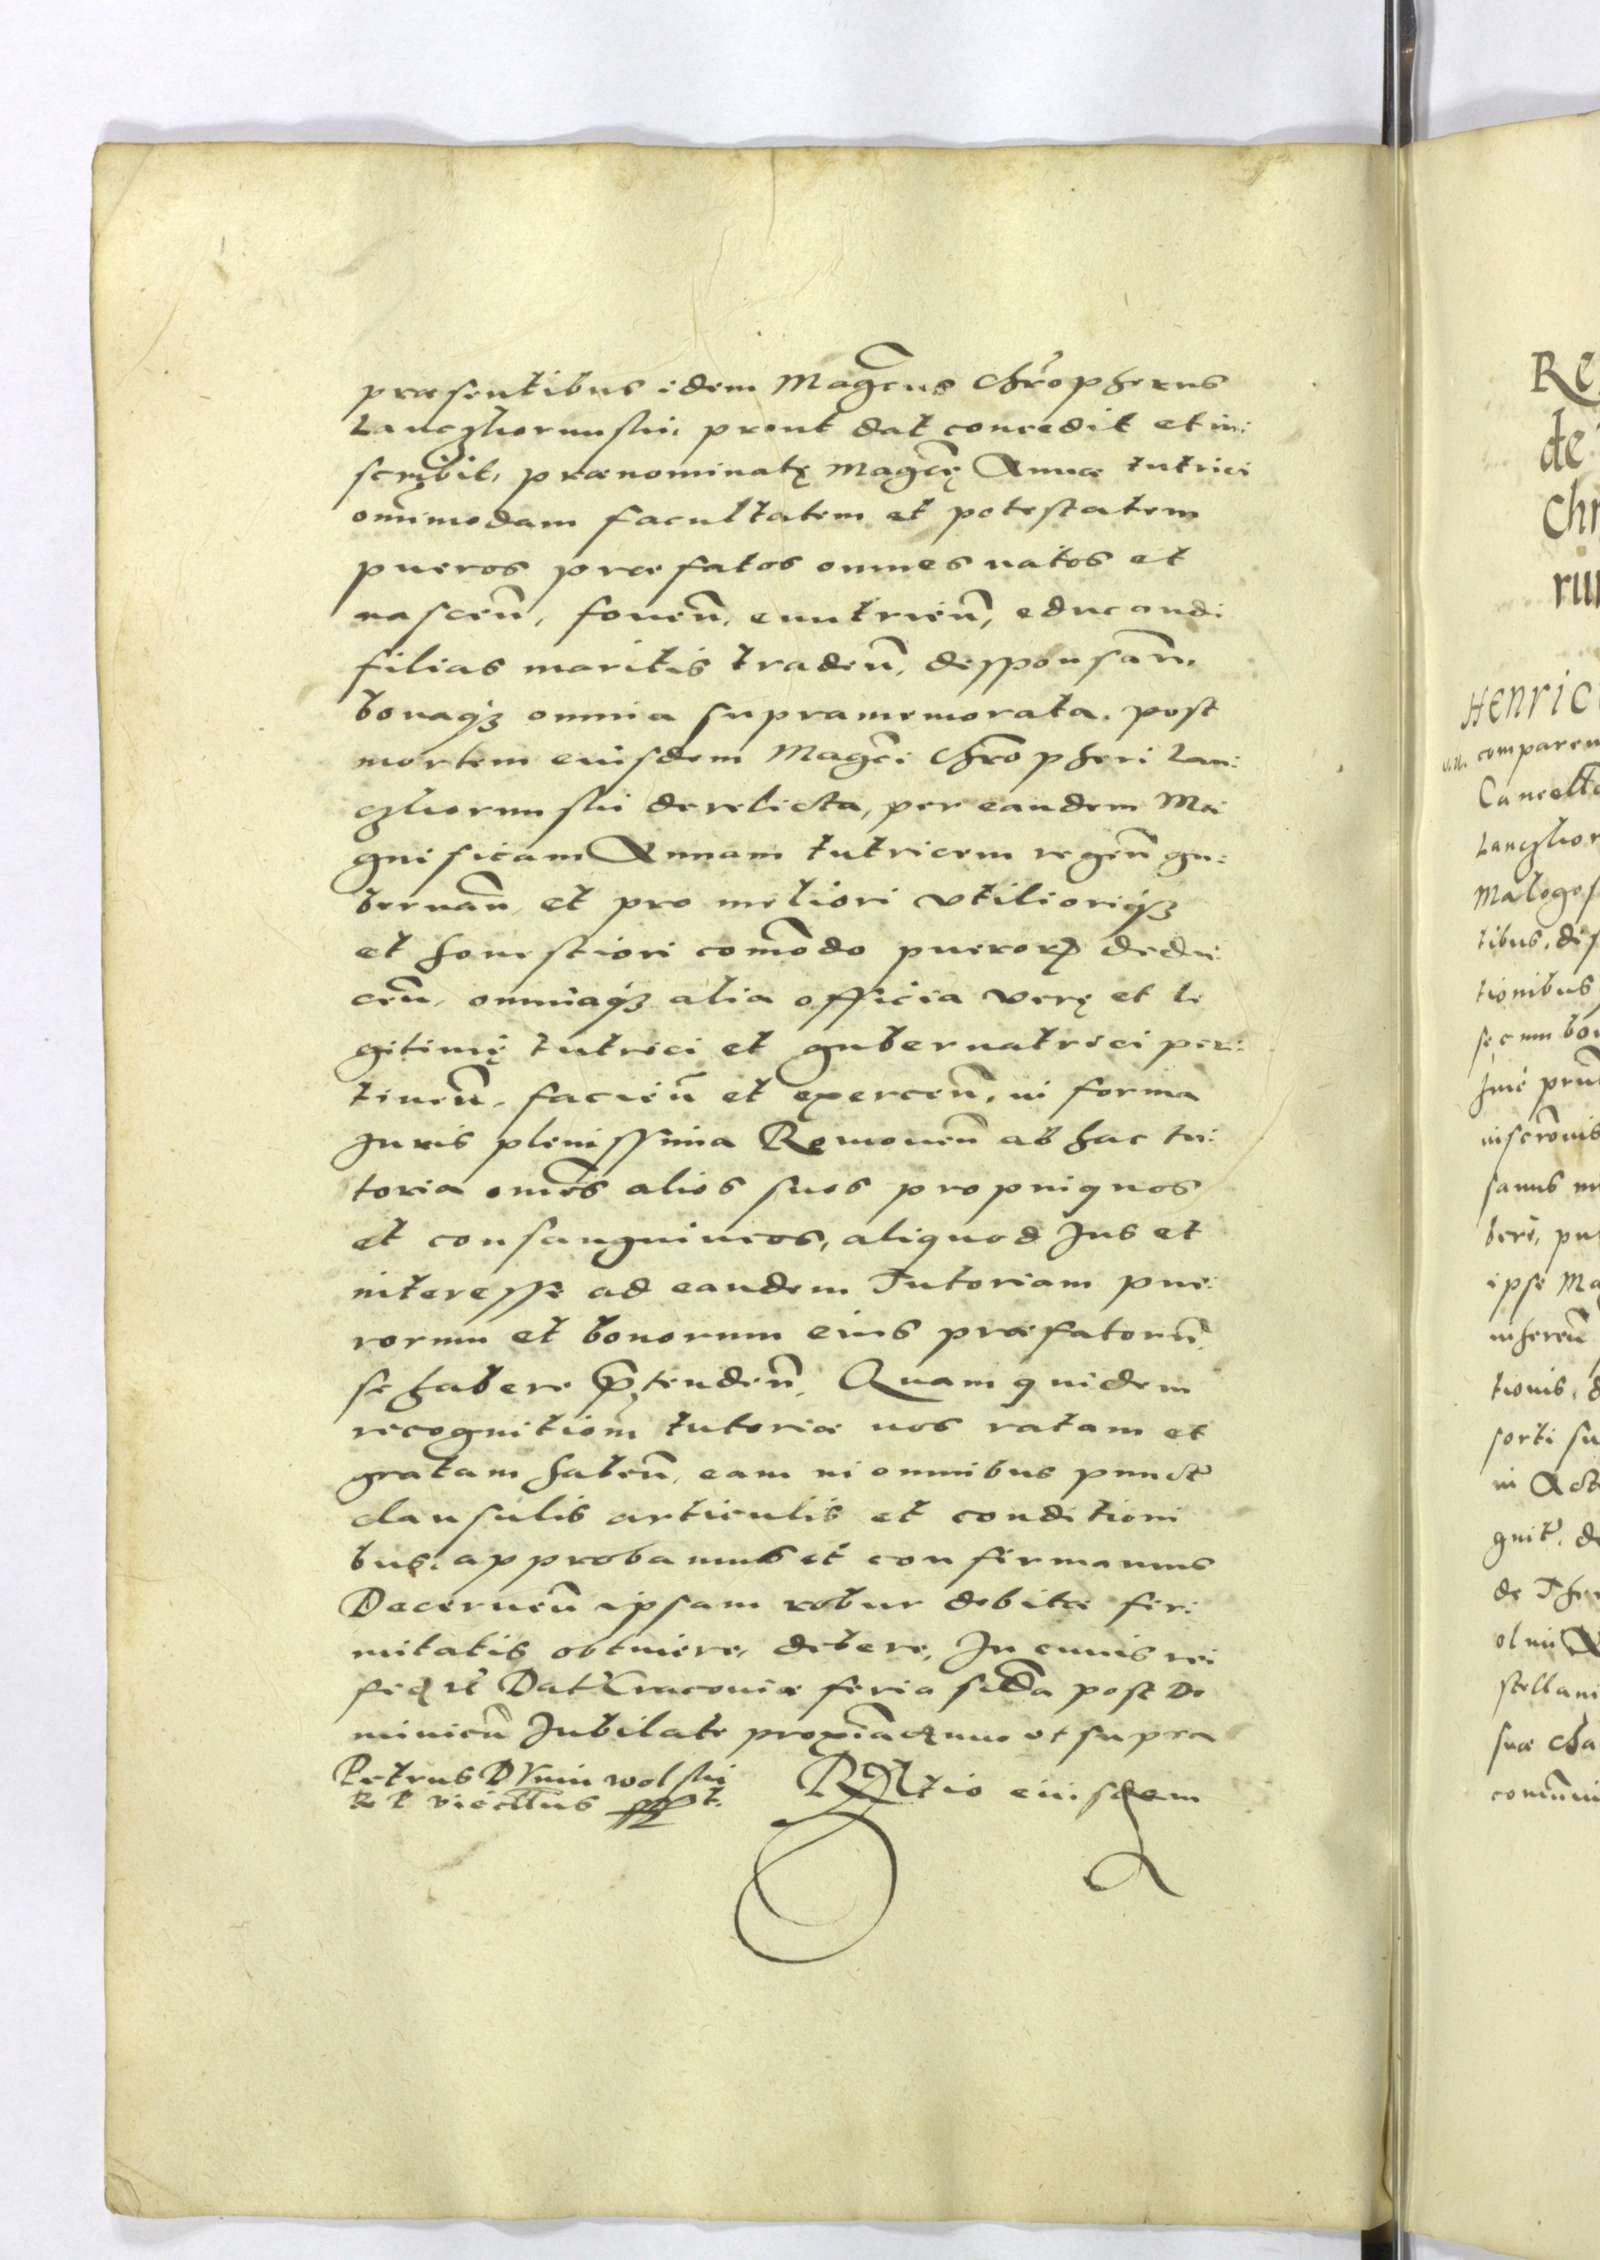 præsentibus idem Magcus Chropherus
Lanczkorunski, prout dat concedit et in:
scribit, prænominatę Magcę Annæ tutrici
omnimodam facultatem et potestatem
pueros præfatos omnes natos et
nascen, fouen, enutrien, educandi
filias maritis traden, desponsan,
bonaqz omnia supramemorata, post
mortem eiusdem Magci Chropheri Lan:
czkorunski derelicta, per eandem Ma
gnificam Annam tutricem regen gu:
bernan, et pro meliori vtilioriqz
et honestiori comodo puerorum dedu:
cen, omniaqz alia officia verę et le
gitimę tutrici et gubernatrici per:
tinen, facien et exercen, in forma
Juris plenissima Remouen ab hac tu:
toria omes alios suos propinquos
et consanguineos, aliquod Jus et
interesse ad eandem Tutoriam pue:
rorum et bonorum eius præfatorum,
se habere prętenden, Quam quidem
recognitiom tutoriæ nos ratam et
gratam haben, eam in omnibus punct
clausulis articulis et conditioni
bus, approbamus et confirmamus
Decernen ipsam robur debitæ fir:
mitatis obtinere, debere, In cuius rei
fidem rc Dat Cracouiæ feria scda post Do
minicam Jubilate proxima Anno vt supra
Petrus Dunin wolski
R P viecllus sspt.
Rltio eiusdem
Re
de
Chr
riu
Henric
comparen
Cancella
Lanczkor
Malogos
tibus, dis
tionibus
se cum bon
sine prnt
inscronis
sanus m
bere, pu
ipse Ma
inheren
tionis, d
sorti su
in Act
gnit, de
de
olim A
stellani
suæ cha
comuni